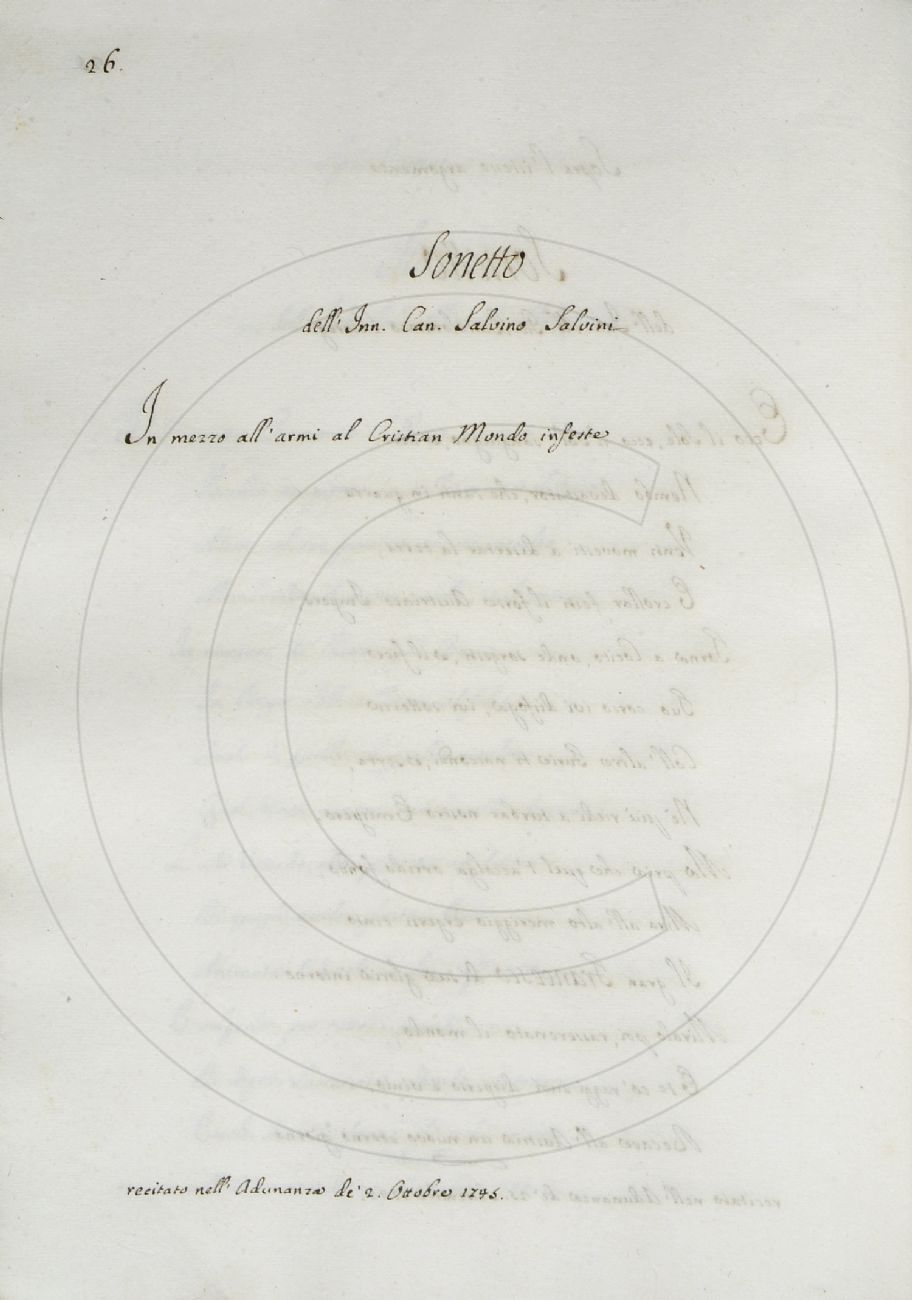 26.
Sonetto
dell' Inn. Can. Salvino Salvini
In mezzo all' armi al Cristian Mondo infeste
recitato nell' Adunanza de' 2. Ottobre 1745.